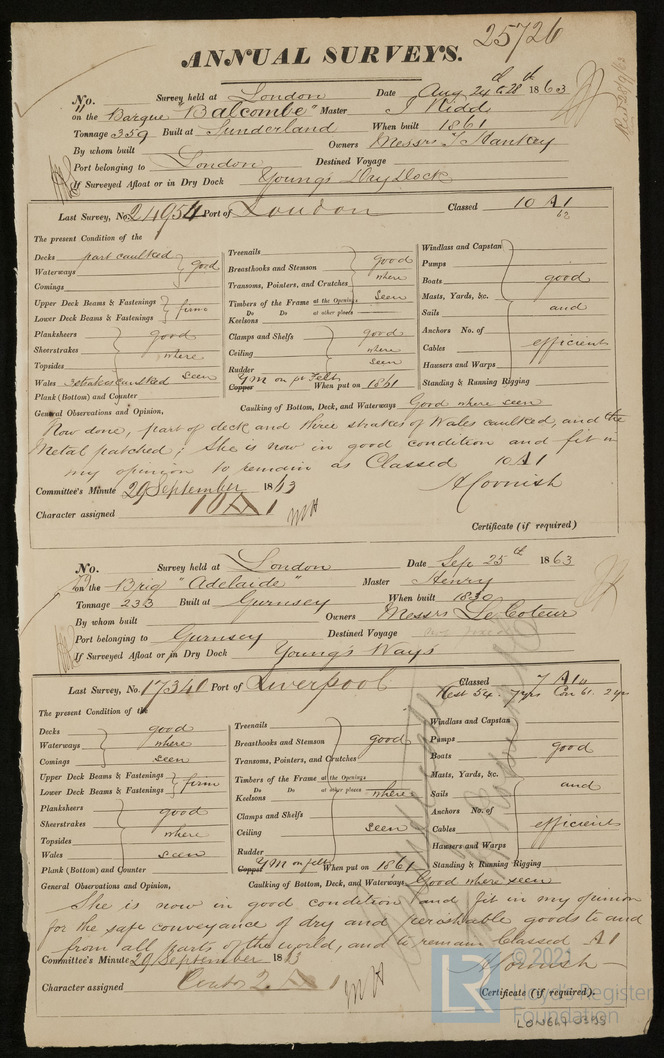 25726
ANNUAL SURVEYS.
No. Survey held at London Date Aug 24th & 28th 1863
on the Barque "Balcombe" Master J Kidd
Tonnage 359 Built at Sunderland When built 1861
By whom built Owners Messrs T Hankey
Port belonging to London Destined Voyage
If Surveyed Afloat or in Dry Dock Young's Dry Dock
Last Survey, No. 24954 Port of London Classed 10 A1
62
The present Condition of the
Decks part caulked
Waterways good
Comings
Upper Deck Beams & Fastenings
Lower Deck Beams & Fastenings firm
Planksheers good
Sheerstrakes where
Topsides
Wales 3 strakes caulked seen
Plank (Bottom) and Counter
Treenails
Breasthooks and Stemson good
Transoms, Pointers, and Crutches where
Timbers of the Frame at the Openings seen
Do Do at other places
Keelsons
Clamps and Shelfs good
Ceiling where
Rudder seen
Copper YM on pt Felt When put on 1861
Windlass and Capstan
Pumps
Boats good
Masts, Yards, &c.
Sails and
Anchors No. of
Cables efficient
Hausers and Warps
Standing & Running Rigging
General Observations and Opinion, Caulking of Bottom, Deck, and Waterways Good where seen
Now done, part of deck and three strakes of Wales caulked, and the
Metal patched; She is now in good condition and fit in
my opinion to remain as Classed 10 A1
Committee's Minute 29 September 1863 A Cornish
Character assigned 10 A 1
Certificate (if required)
No. Survey held at London Date Sep 25th 1863
on the Brig "Adelaide" Master Henry
Tonnage 233 Built at Gurnsey When built 1830
By whom built Owners Messrs Le Coteur
Port belonging to Gurnsey Destined Voyage
If Surveyed Afloat or in Dry Dock Young's Ways
Last Survey, No. 17340 Port of Liverpool Classed 7 A1
Rest 54. 7 yrs Con 61. 2 yrs
The present Condition of the
Decks good
Waterways where
Comings seen
Upper Deck Beams & Fastenings
Lower Deck Beams & Fastenings firm
Planksheers good
Sheerstrakes
Topsides where
Wales seen
Plank (Bottom) and Counter
Treenails
Breasthooks and Stemson good
Transoms, Pointers, and Crutches
Timbers of the Frame at the Openings
Do Do at other places where
Keelsons
Clamps and Shelfs
Ceiling seen
Rudder
Copper YM on felt When put on 1861
Windlass and Capstan
Pumps
Boats good
Masts, Yards, &c.
Sails and
Anchors No. of
Cables efficient
Hausers and Warps
Standing & Running Rigging
General Observations and Opinion, Caulking of Bottom, Deck, and Waterways Good where seen
She is now in good condition and fit in my opinion
for the safe conveyance of dry and perishable goods to and
from all parts of the world, and to remain Classed A1
Committee's Minute 29 September 1863 A Cornish
Character assigned Contd 2 A 1
Certificate (if required).
LR © 2021
Lloyd's Register
Foundation
LON649-0395